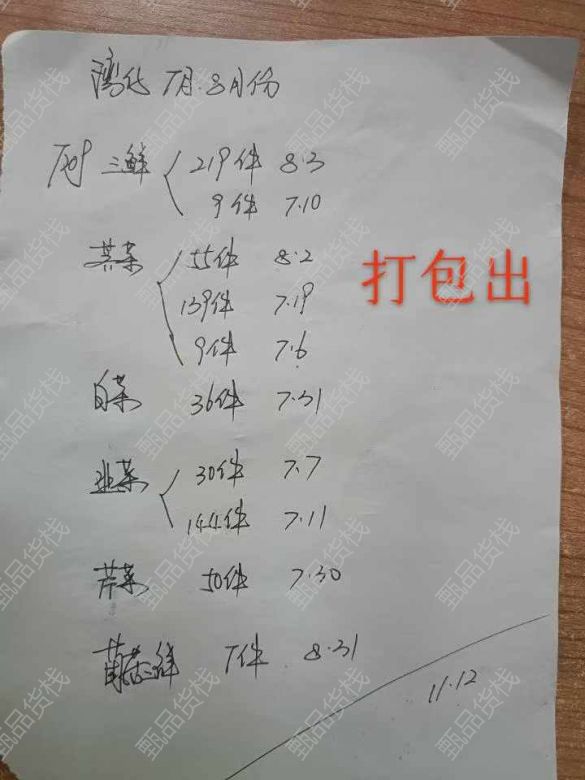 湾仔 7月.8月份
7os 三鲜 219件 8.3
9件 7.10
荠菜 55件 8.2
139件 7.19
9件 7.6
打包出
白菜 36件 7.31
韭菜 30件 7.7
144件 7.11
芹菜 50件 7.30
菌菇三鲜 7件 8.31
11.12
甄品货栈